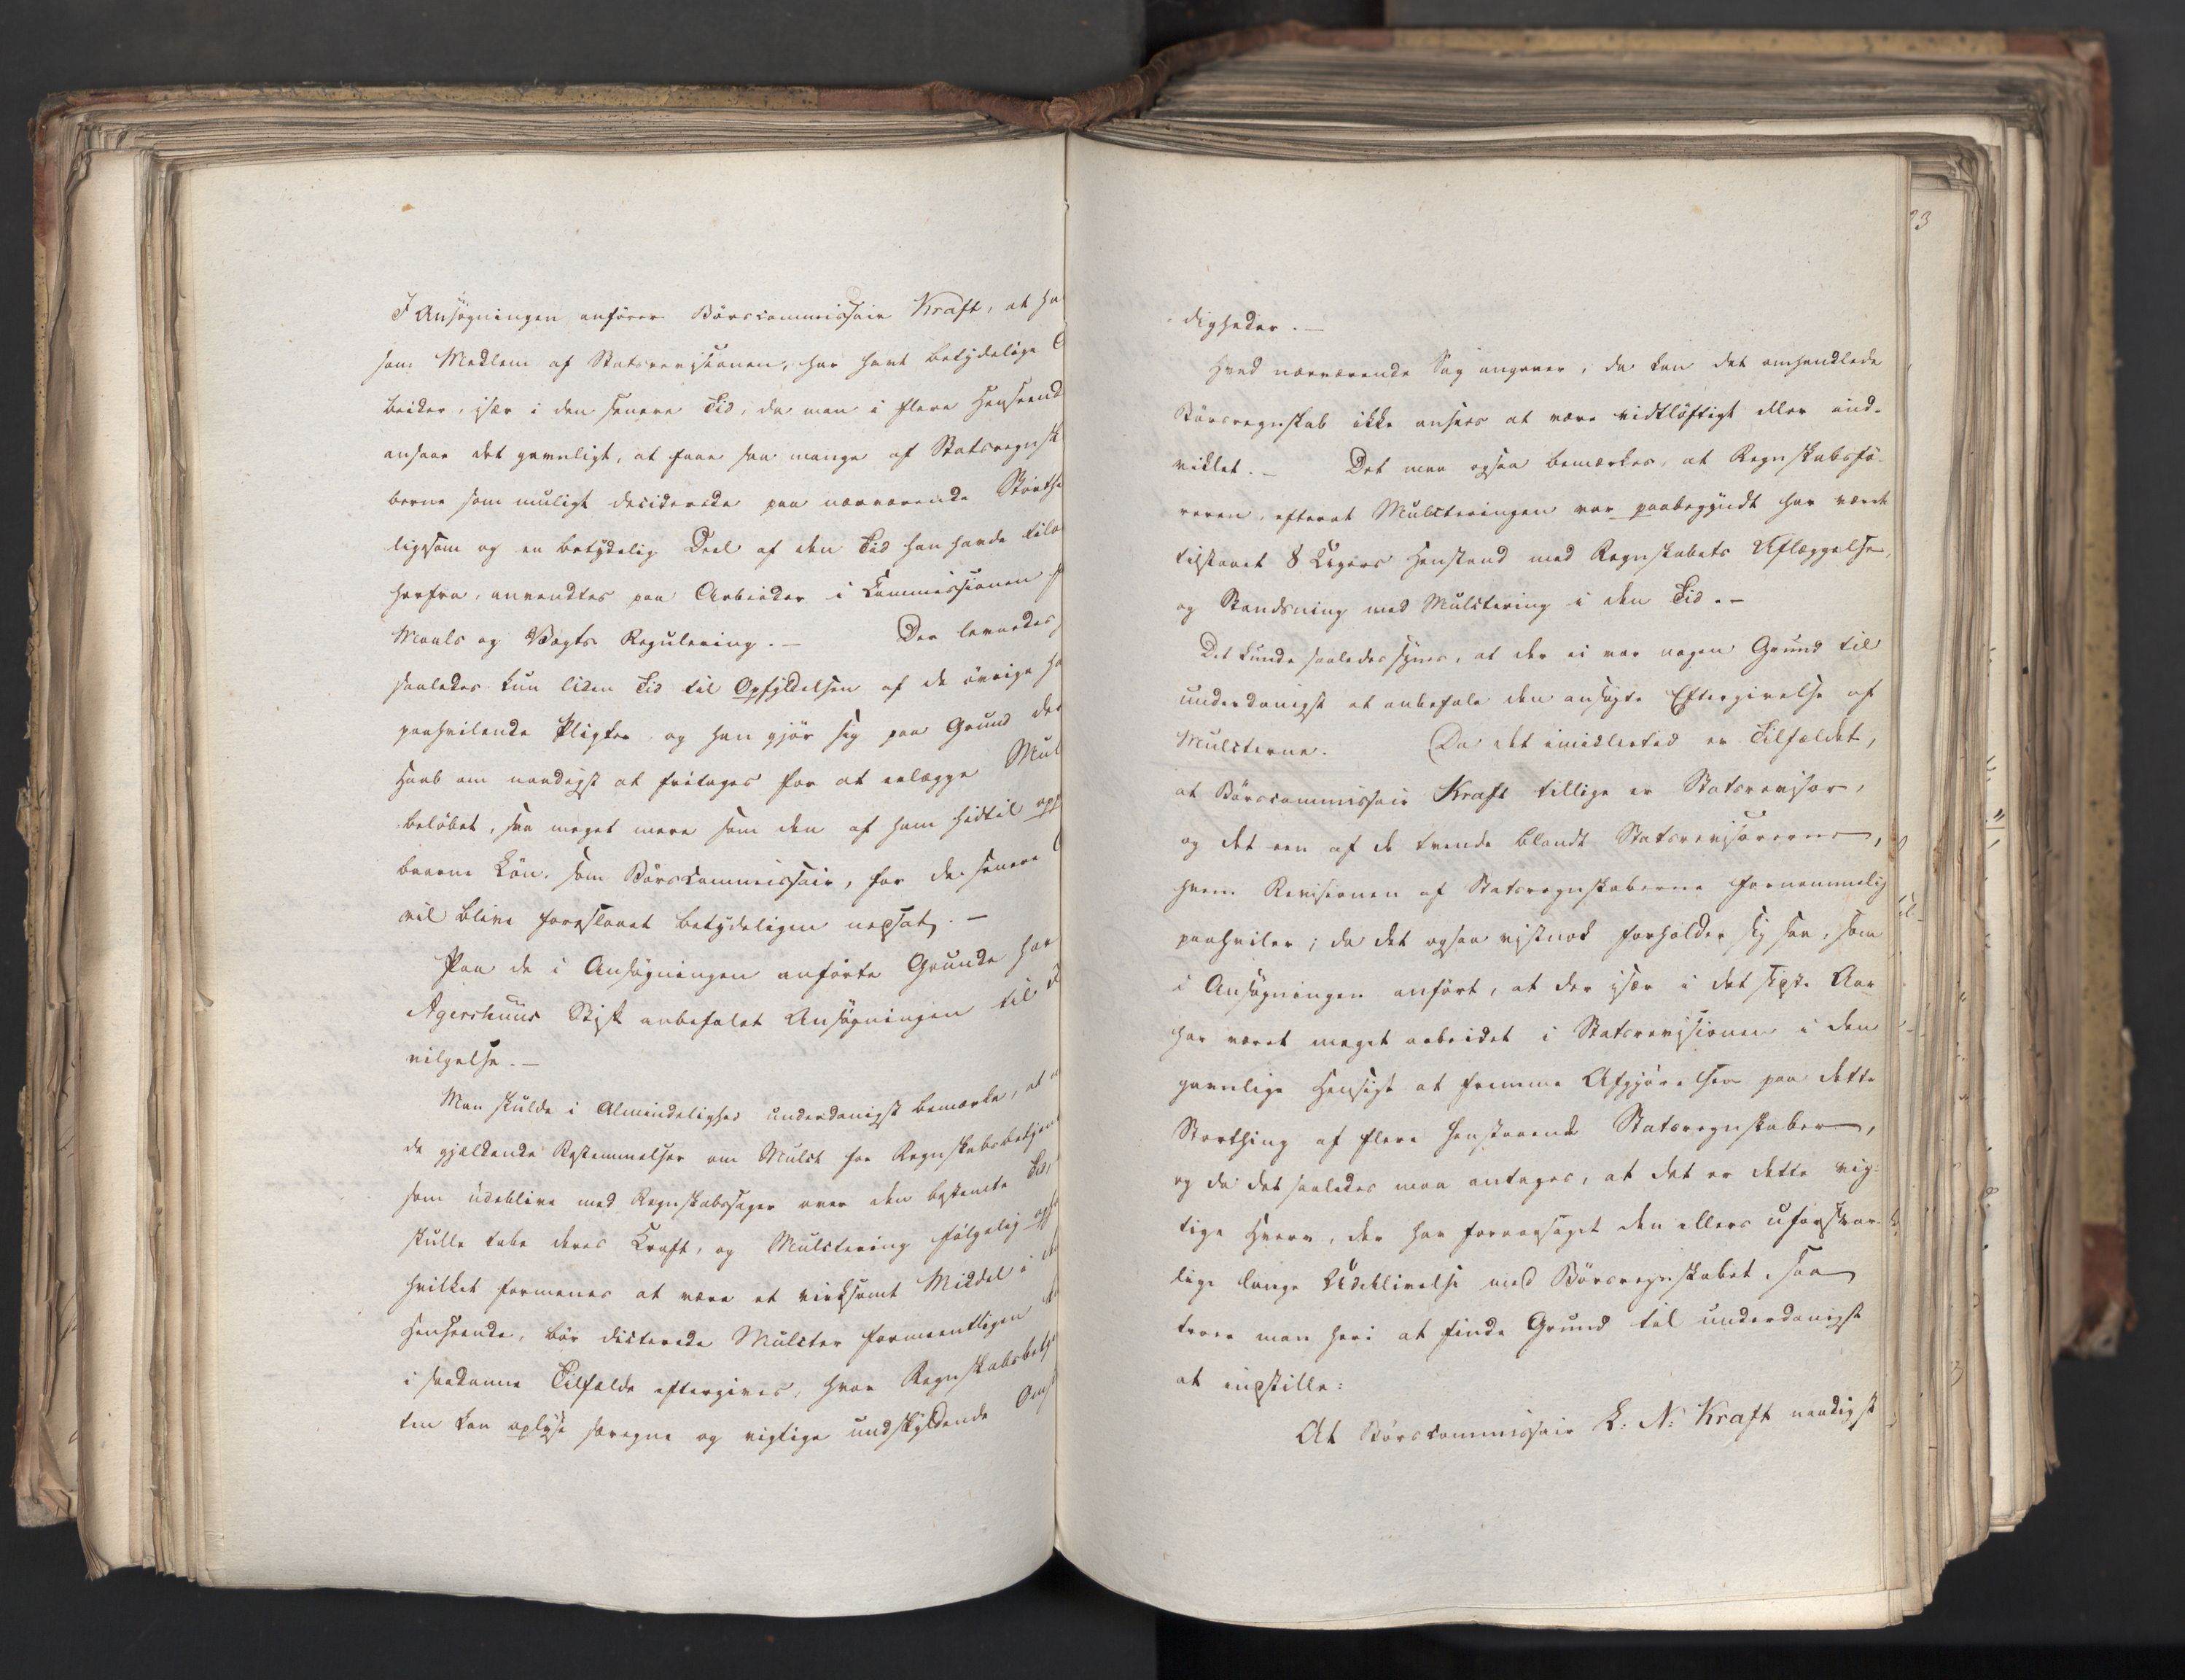 I Ansøgningen anfører Börscommissair Kraft, at ha
som Medlem af Statsrevisionen, har havt betydelige
beider, især i den senere Tid, da man i flere Henseend
ansaae det gavnligt, at faae saa mange af Statsregnsk
berne som muligt deciderede paa nærværende Storthi
ligesom og en betydelig Deel af den Tid han havde tilo
herfra, anvendtes paa Arbeider i Commissionen f
Maals og Vægts Regulering. — Der levnedes
saaledes kun liden Tid til Opfyldelsen af de övrige ha
paahvilende Pligter og han gjör sig paa Grund der
Haab om naadigst at fritages for at erlægge Mul
belöbet, saa meget mere som den af ham hidtil opp
baarne Lön, som Börscommissair, for de senere
vil blive foreslaaet betydeligen nedsat. —
Paa de i Ansøgningen anførte Grunde har
Agershuus Stift anbefalet Ansøgningen til
vilgelse. —
Man skulde i Almindelighed underdanigst bemærke, at
de gjældende Bestemmelser om Mulct for Regnskabsbetjen
som udeblive med Regnskabssager over den bestemte Tid,
skulle tabe deres Kraft, og Mulctering fölgelig oph
hvilket formenes at være et virksomt Middel i d
Henseende, bör dicterede Mulcter formeentligen
i saadanne Tilfælde eftergives, hvor Regnskabsbetje
ten kan oplyse særegne og vigtige undskyldende Omst
digheder. —
Hvad nærværende Sag angaaer, da kan det omhandlede
Börsregnskab ikke ansees at være vidtlöftigt eller ind-
viklet. — Det maa ogsaa bemærkes, at Regnskabsfö-
reren, efterat Mulcteringen var paabegyndt har været
tilstaaet 8 Ugers Henstand med Regnskabets Aflæggelse,
og Standsning med Mulctering i den Tid. —
Det kunde saaledes synes, at der ei var nogen Grund til
underdanigst at anbefale den ansøgte Eftergivelse af
Mulcterne. Da det imidlertid er Tilfældet,
at Börscommissair Kraft tillige er Statsrevisor,
og det een af de tvende blandt Statsrevisorerne,
hvem Revisionen af Statsregnskaberne fornemmelig
paahviler; da det ogsaa vistnok forholder sig saa, som
i Ansøgningen anfört, at der især i det sidste Aar
har været meget arbeidet i Statsrevisionen i den
gavnlige Hensigt at fremme Afgjörelsen paa dette
Storthing af flere henstaaende Statsregnskaber,
og da det saaledes maa antages, at det er dette vig-
tige Hverv, der har foraarsaget den ellers uforsvar-
lige lange Udeblivelse med Börsregnskabet, saa
troer man heri at finde Grund til underdanigst
at indstille:
At Börscommissair L: N: Kraft naadigst